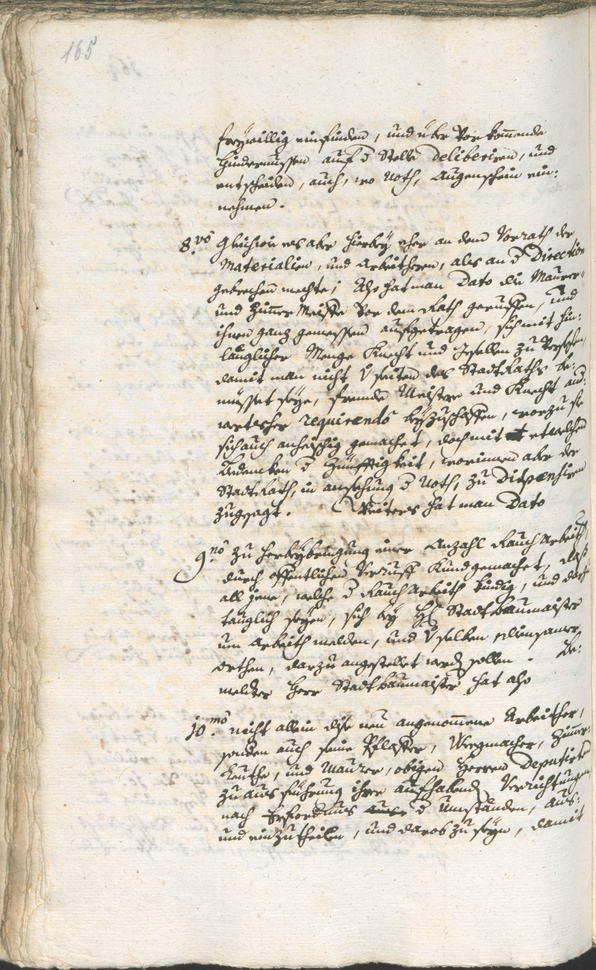 165
freywillig einfinden, und über Vorkom̄ende
Hindernussen auf d Stelle deliberiren, und
entscheiden, auch, wo Noth, Augenschein ein:
nehmen.
8.vo aber hierbey eher an dem Vorrath der
Materialien, und Arbeitheren, als an d Direction
gebrechen mechte; Also hat man Dato die Maurer
und Zim̄er Meister vor dem Rath geruffen, und
ihnen ganz gemessen aufgetragen, sich mit hin:
länglicher Menge Knecht und Gesellen zu versehen,
damit man nicht V seiten des StadtRaths be:
müsset seye, fremde Meister und Knecht and
wertsher requirendo beyzuschaffen, worzu sie
sich auch anheischig gemachet, doch mit etwelchen
Andencken d Zünfftigkeit, worinnen aber der
StadtRath, in ansehung d Noth, zu Dispensiren
zugesagt. Weiters hat man Dato
9.no zu herbeybringung einer Anzahl Rauch Arbeith
durch offentlichen Verruff Kundgemachet, dass
all jene, welche d Rauch Arbeith kündig, und darzu
tauglich seyen, sich bey H Stadtbaumaister
um Arbeith melden, und V selben
orthen, darzu angestellet werd sollen. Be:
melder Herr Stadtbaumaister hat also
10.mo nicht allein dise neu angenom̄ene Arbeither,
sonden auch seine Pflaster, Wegmacher, Zimer
Leuthe, und Maurer, obigen Herren Deputirten
zu ausführung ihrer aufhabend Verrichtungen
nach Erfordernus d Umständen, aus:
und einzutheilen, und darob zu seyn, damit